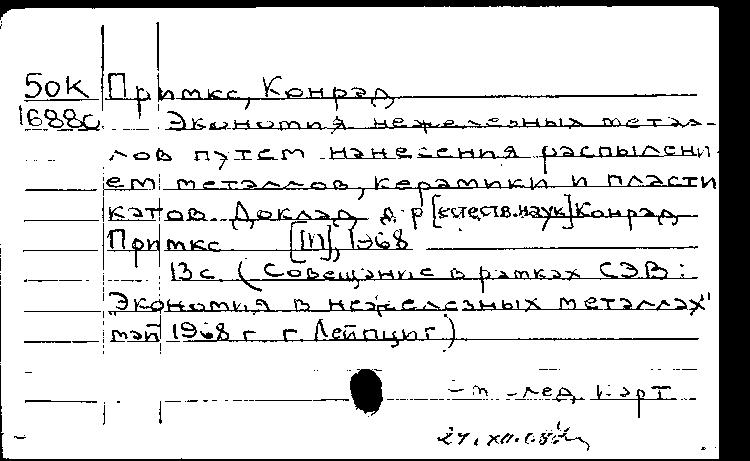 50К Примкс, Конрад
1688с Экономия нежелезных метал-
лов путем нанесения распылени-
ем металлов, керамики и пласти
катов. Доклад д-р [естеств. наук] Конрад
Примкс [М], 1968
13 с. (Совещание в рамках СЭВ:
"Экономия в нежелезных металлах"
май 1968 г. г. Лейпциг)